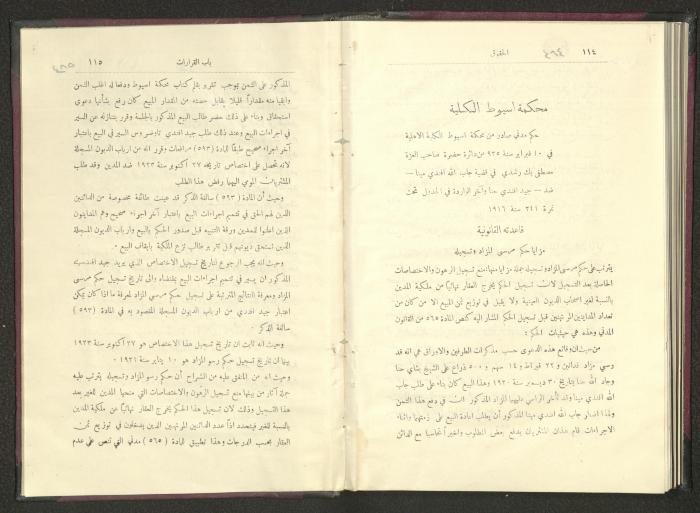 ١١٤ ٤٩٤ الحقوق
محكمة اسيوط الكلية
حكم مدني صادر من محكمة اسيوط الكلية الاهلية
في ١٠ فبراير سنة ٩٣٥ من دائرة حضرة صاحب العزة
مصطفى بك رشدي في قضية جاب الله افندي مينا —
ضد — جيد افندي حنا وآخر الواردة في الجدول تحت
نمرة ٣٤١ سنة ١٩١٦
قاعدته القانونية
مزايا حكم مرسى المزاد وتسجيله
يترتب على حكم مرسى المزاد وتسجيله جملة مزايا منها منع تسجيل الرهون والاختصاصات
الحاصلة بعد التسجيل لان تسجيل الحكم يخرج العقار نهائيًا من ملكية المدين
بالنسبة لغير اصحاب الديون العينية ولا يقبل في توزيع ثمن المبيع الا من كان من
تعداد المداينين المرتهنين قبل تسجيل الحكم المشار اليه كنص المادة ٥٦٥ من القانون
المدني وهذه هي حيثيات الحكم:
من حيث ان وقائع هذه الدعوى حسب مذكرات الطرفين والاوراق هي انه قد
رسى مزاد فدانين و ٢٢ قيراط و ١٤ سهم و ٥٠٠ ذراع على الشيخ بشاي حنا
وجاد الله حنا بتاريخ ٣٠ ديسمبر سنة ١٩٢٠ وهذا البيع كان بناء على طلب جاب
الله افندي مينا ولما تأخر الراسي عليهما المزاد المذكور ان في دفع هذا الثمن
ولهذا اضطر جاب الله افندي مينا المذكور أن يطلب اعادة البيع على ذمتهما واثناء
الاجراءات قام هذان المشتريان بدفع بعض المطلوب واخيرا تحاسبا مع الدائن
باب القرارات ١١٥
المذكور على الثمن بموجب تقرير بقلم كتاب محكمة اسيوط ودفعا له اغلب الثمن
وابقيا منه مقدارًا قليلا يقابل حصته من المقدار المبيع كان رفع بشأنها دعوى
استحقاق وبناء على ذلك حضر طالب البيع المذكور بالجلسة وقرر بتنازله عن السير
في اجراءات البيع وعند ذلك طلب جيد افندي تاوضروس السير في البيع باعتبار
آخر اجراء صحيح طبقًا للمادة (٥٩٣) مرافعات وقرر انه من ارباب الديون المسجلة
لانه تحصل على اختصاص تاريخه ٢٧ أكتوبر سنة ١٩٢٣ ضد المدين وقد طلب
المشتريان المومى اليهما رفض هذا الطلب
وحيث أن المادة (٥٩٣) سالفة الذكر قد عينت طائفة مخصوصة من الدائنين
الذين لهم الحق في تتميم اجراءات البيع باعتبار آخر اجراء صحيح وهم المداينون
الذين اعلنوا للمدين ورقة التنبيه قبل صدور الحكم بالبيع وارباب الديون المسجلة
الذين استحق ديونهم قبل تقرير طالب نزع الملكية بايقاف البيع.
وحيث انه يجب الرجوع لتاريخ تسجيل الاختصاص الذي يريد جيد افندي
المذكور ان يسير في تتميم اجراءات البيع بمقتضاه والى تاريخ تسجيل حكم مرسى
المزاد ومعرفة النتائج المترتبة على تسجيل حكم مرسى المزاد لمعرفة ما اذا كان يمكن
اعتبار جيد افندي من ارباب الديون المسجلة المقصود به في المادة (٥٩٣)
سالفة الذكر.
وحيث انه ثابت ان تاريخ تسجيل هذا الاختصاص هو ٢٧ أكتوبر سنة ١٩٢٣
بينما ان تاريخ تسجيل حكم رسو المزاد هو ١٠ يناير سنة ١٩٢١.
وحيث انه من المتفق عليه من الشراح أن حكم رسو المزاد وتسجيله يترتب عليه
جملة آثار من بينها منع تسجيل الرهون والاختصاصات التي منحها المدين للغير بعد
هذا التسجيل وذلك لان تسجيل هذا الحكم يخرج العقار نهائيًا عن ملكية المدين
بالنسبة للغير فيتحدد اذًا عدد الدائنين المرتهنين الذين يدخلون في توزيع ثمن
العقار بحسب الدرجات وهذا تطبيق المادة (٥٦٥) مدني التي تنص على عدم